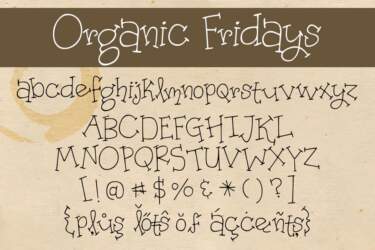 Organic Fridays
abcdefghijklmnopqrstuvwxyz
ABCDEFGHIJKL
MNOPQRSTUVWXYZ
[!@#$%&*()?]
{plus lőtŝ ŏf áççèñtš}